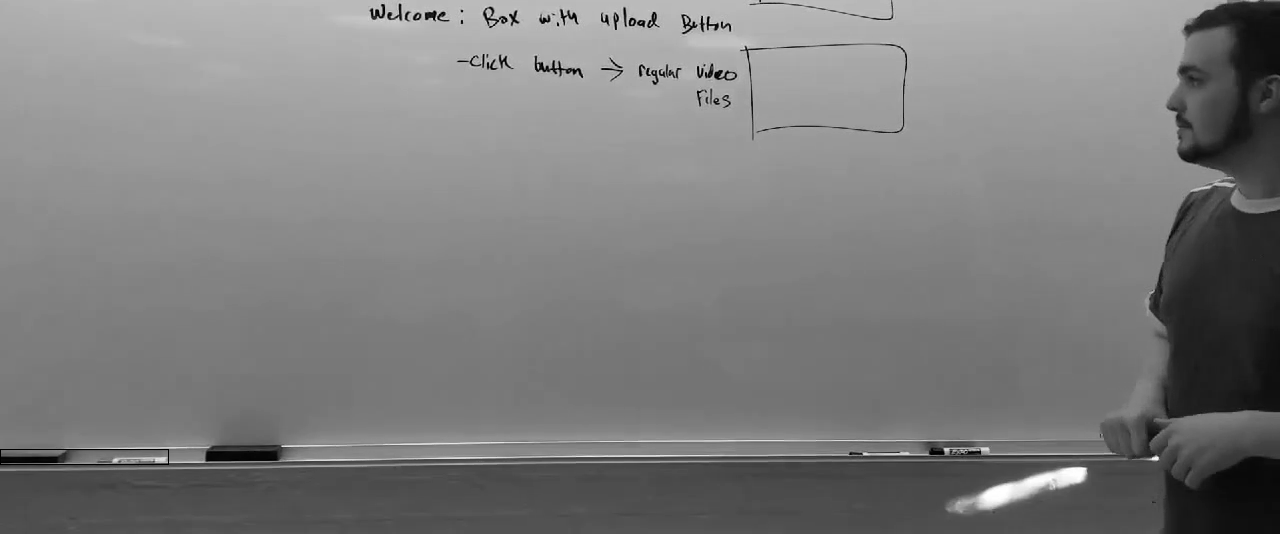 Welcome: Box with upload Button
-Click button → regular video
Files
EXPO